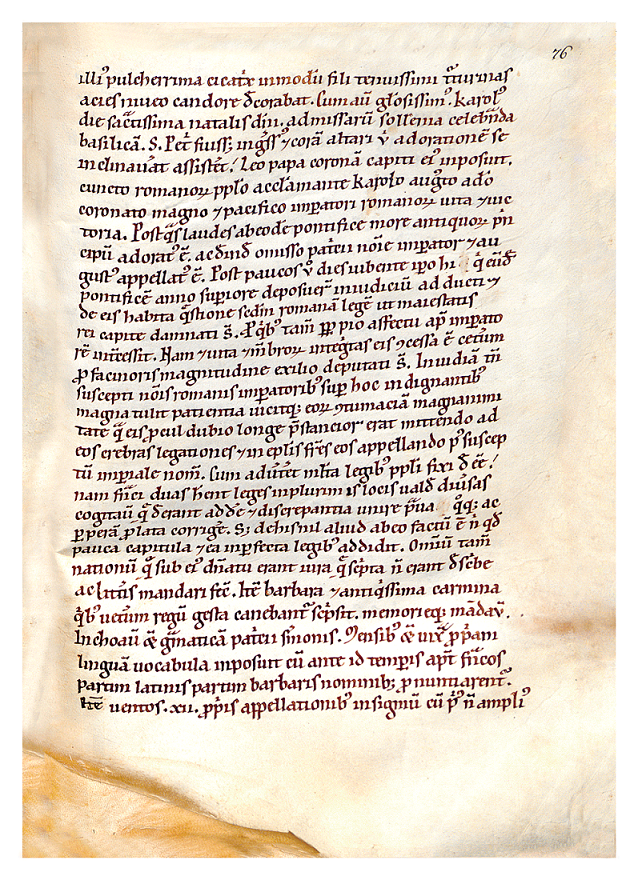 76
illi' pulcherrima cicatrix inmodū fili tenuissimi
acies niueo candore decorabat. Cum aū glōsissim' karol'
die sāctissima natalis dni. ad missarū sollenia celebrāda
basilicā. S. Petri
inclinauāt assistēt! Leo papa coronā capiti ei' inposuit.
cuncto romanoꝝ pplo acclamante karolo augto a dō
coronato magno ⁊ pacifico impatori romanoꝝ uita ⁊ uic
toria. Post qs laudes ab eodē pontifice more antiquoꝝ pn
cipū adorat' ē. ac omisso patricii noīe impator ⁊ au
gust' appellat' ē. Post paucos v dies iubente ipo hi qi eūd
pontificē anno supiore deposuer in iudiciū adducti ⁊
de eis habita qstione scdm romanā legē ut maiestatis
rei capite damnati s̄. p qb' tam pp pio affectu ap impato
rē intcessit. Nam ⁊ uita ⁊ mbroꝝ integtas eis ꝯcessa ē cetum
ꝓ facinoris magnitudine exilio deputati s̄. Inuidiā tn
suscepti nōis romanis impatorib' sup hoc indignantib'
magna tulit patientia uicitq; eoꝝ ꝯtumaciā magnanimi
tate q̄ eis pcul dubio longe pstancior erat mittendo ad
eos crebras legationes ⁊ in eplis frēs eos appellando. p' suscep
tū impiale nom̄. Cum adutet mlta legib' ppli sui dēē!
nam frnci duas hent leges in plurim is locis ualđ diusas
cogitauit q̄ deerant addē ⁊ discrepantia unire ac
ppera plata corrigē. S; de his nil aliud ab eo factū ē n qd
pauca capitula ⁊ ea inpfecta legib' addidit. Omiū tam
nationū q̄ sub ei' dnatu erant iura q̄ scpta n̄ erant dscbe
ac littis mandari fec̄. Itē barbara ⁊ antiqssima carmina
qb' uetum regū gesta canebant' scpsit. memorieq; mādau.
Inchoauit & gmaticā patrii smonis. Mensib' & iux ppam
linguā uocabula inposuit cū ante id tempis apt frncos
partim latinis partim barbaris nominib; pnuntiarent'.
Itē uentos. xii. ppis appellationib' insigniuit cū p' n̄ ampli'